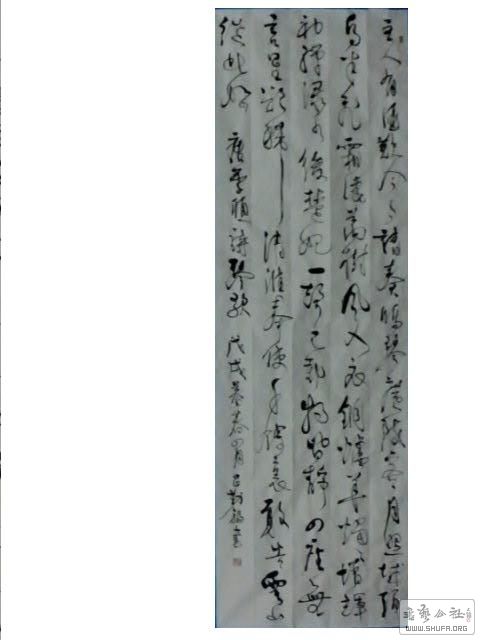 主人有酒歡今夕請奏鳴琴廣陵客月照城頭
烏半飛霜淒萬樹風入衣銅爐華燭燭增輝
初彈渌水後楚妃一聲已動物皆靜四座無
言星欲稀清淮奉使千餘里敢告雲山
從此始 唐李頎詩琴歌 戊戌暮春
书艺公社
WWW.SHUFA.ORG